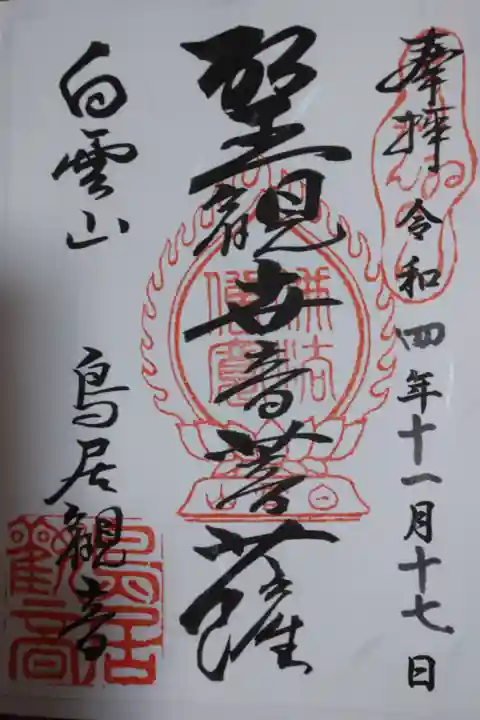 奉拝 令和四年十一月十七日
聖観世音菩薩
佛法僧寳
白雲山 鳥居観音
鳥居観音